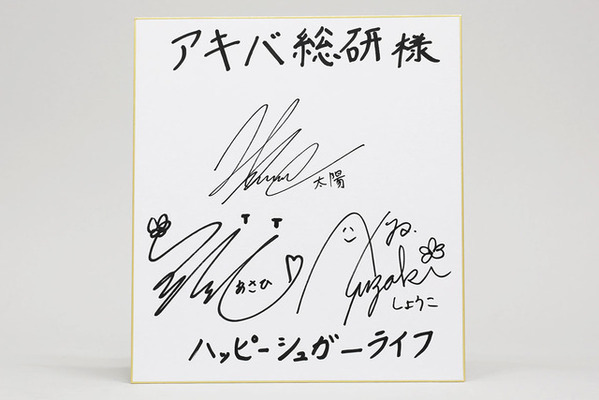 アキバ総研様
太陽
あさひ
yo.
yuzaki
しょうこ
ハッピーシュガーライフ